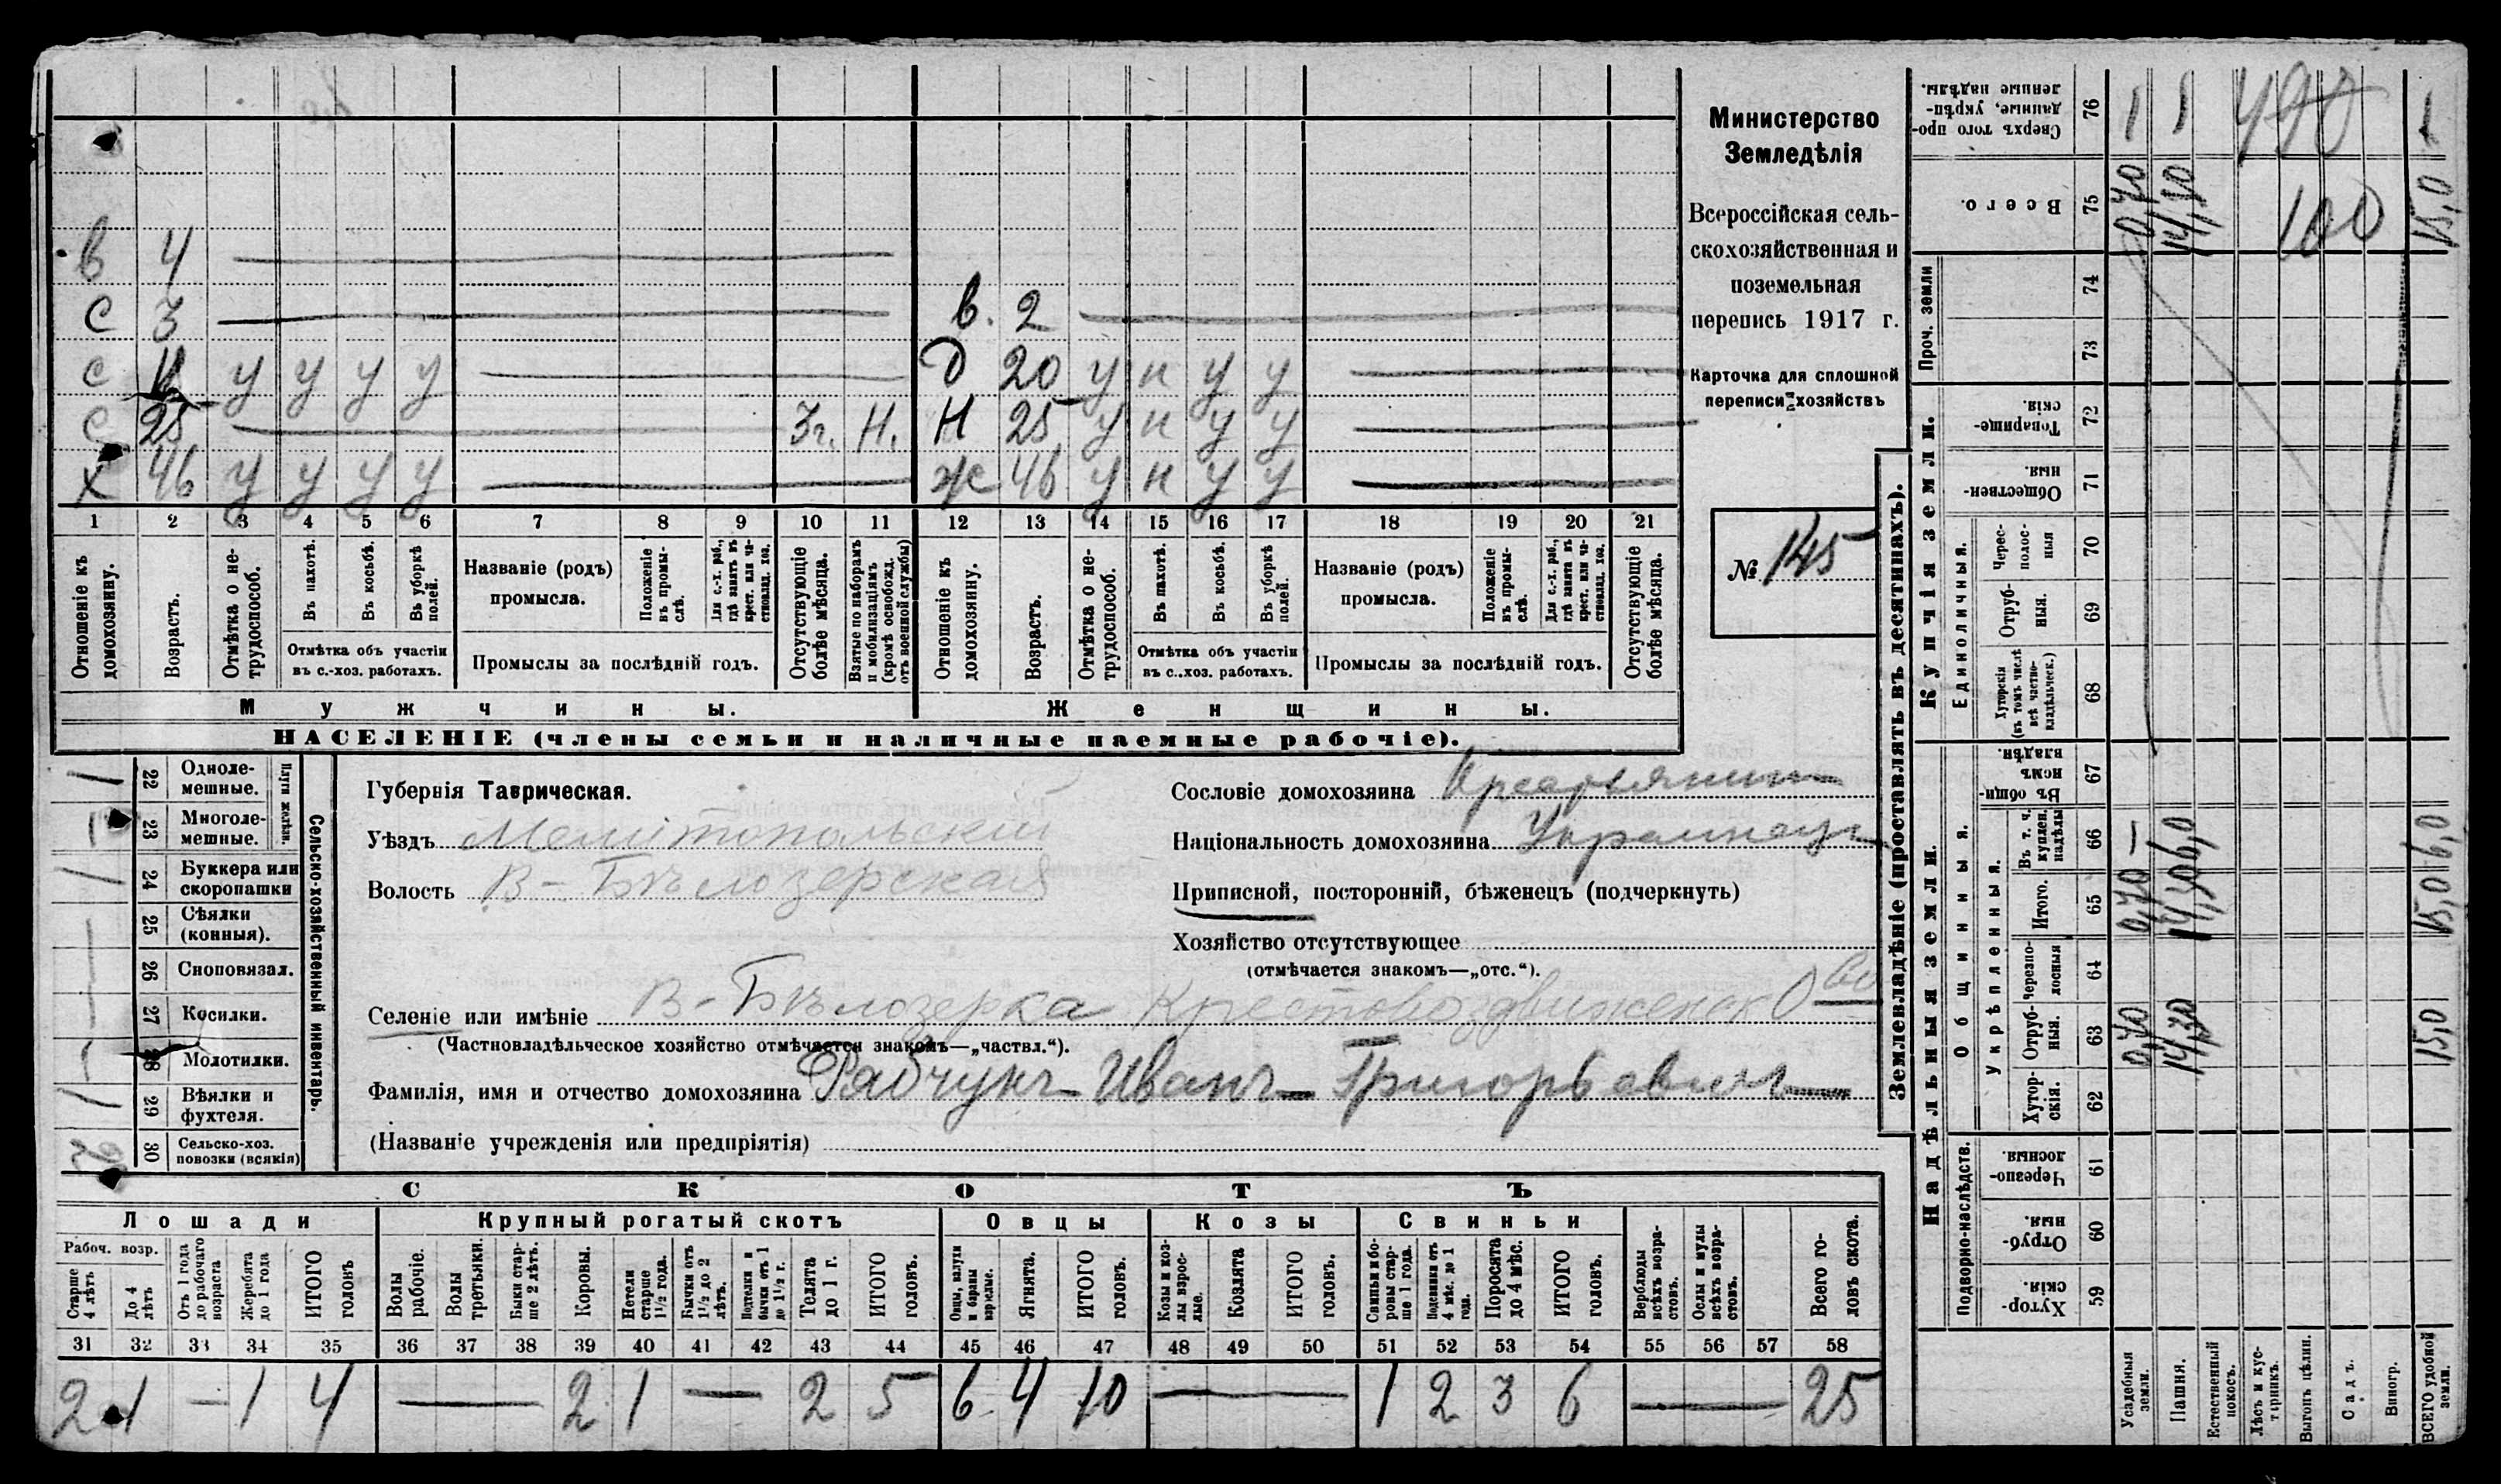 в 4
С 3 в. 2
с у у у у д 20 у н у у
С 25 3 г. Н. Н 25 у н у у
х 46 у у у у ж 46 у н у у
1 2 3 4 5 6 7 8 9 10 11 12 13 14 15 16 17 18 19 20 21
Отношеніе къ домохозяину.
Возрастъ.
Отмѣтка о не-
трудоспособ.
Въ пахотѣ.
Въ косьбѣ.
Въ уборкѣ
полей.
Отмѣтка объ участіи
въ с.-хоз. работахъ.
Названіе (родъ)
промысла.
Положеніе
въ промы-
слѣ.
Для с.-х. раб.,
гдѣ занятъ въ
крест. или ча-
стновлад. хоз.
Промыслы за послѣдній годъ.
Отсутствующіе
болѣе мѣсяца.
Взятые по наборамъ
и мобилизаціямъ
(кромѣ освобожд.
отъ военной службы)
Отношеніе къ
домохозяину.
Возрастъ.
Отмѣтка о не-
трудоспособ.
Въ пахотѣ.
Въ косьбѣ.
Въ уборкѣ
полей.
Отмѣтка объ участіи
въ с.-хоз. работахъ.
Названіе (родъ)
промысла.
Положеніе
въ промы-
слѣ.
Для с.-х. раб.,
гдѣ занята въ
крест. или ча-
стновлад. хоз.
Промыслы за послѣдній годъ.
Отсутствующіе
болѣе мѣсяца.
Мужчины. Женщины.
НАСЕЛЕНІЕ (члены семьи и наличные наемные рабочіе).
Министерство
Земледѣлія
Всероссійская сель-
скохозяйственная и
поземельная
перепись 1917 г.
Карточка для сплошной
переписи хозяйствъ
№ 145
22 Одноле-
мешные. 1
23 Многоле-
мешные. —
Плуги желѣзн.
24 Буккера или
скоропашки 1
25 Сѣялки
(конныя). —
26 Сноповязал. —
27 Косилки. —
28 Молотилки. —
29 Вѣялки и
фухтеля. 1
30 Сельско-хоз.
повозки (всякія) 2
Сельско-хозяйственный инвентарь.
Губернія Таврическая.
Уѣздъ Мелітопольскій
Волость В-Бѣлозерская
Селеніе или имѣніе В-Бѣлозерка Крестовоздвиженск О-во
(Частновладѣльческое хозяйство отмѣчается знакомъ—„частвл.“).
Фамилія, имя и отчество домохозяина Рябчунъ Иванъ Григорьевичъ
(Названіе учрежденія или предпріятія)
Сословіе домохозяина Крестьянинъ
Національность домохозяина Украинецъ
Приписной, посторонній, бѣженецъ (подчеркнуть)
Хозяйство отсутствующее
(отмѣчается знакомъ—„отс.“).
СКОТЪ
Лошади Крупный рогатый скотъ Овцы Козы Свиньи
Рабоч. возр.
Старше
4 лѣтъ
До 4
лѣтъ
Отъ 1 года
до рабочаго
возраста
Жеребята
до 1 года
ИТОГО
головъ
Волы
рабочіе.
Волы
третьяки.
Быки стар-
ше 2 лѣтъ.
Коровы.
Нетели
старше
1 1/2 года.
Бычки отъ
1 1/2 до 2
лѣтъ.
Подтелки и
бычки отъ 1
до 1 1/2 г.
Телята
до 1 г.
ИТОГО
головъ.
Овцы, валухи
и бараны
взрослые.
Ягнята.
ИТОГО
головъ.
Козы и коз-
лы взрос-
лые.
Козлята
ИТОГО
головъ.
Свиньи и бо-
ровы стар-
ше 1 года.
Подсвинки отъ
4 мѣс. до 1
года.
Поросята
до 4 мѣс.
ИТОГО
головъ.
Верблюды
всѣхъ возра-
стовъ.
Ослы и мулы
всѣхъ возра-
стовъ.
Всего го-
ловъ скота.
31 32 33 34 35 36 37 38 39 40 41 42 43 44 45 46 47 48 49 50 51 52 53 54 55 56 57 58
2 1 — 1 4 — 2 1 — 2 5 6 4 10 — 1 2 3 6 — 25
Землевладѣніе (проставлять въ десятинахъ).
Надѣльныя земли. Купчія земли. Проч. земли
Подворно-наслѣдств.
Общинныя.
Укрѣпленныя.
Единоличныя.
59 Хутор-
скія.
60 Отруб-
ныя.
61 Черезпо-
лосныя.
62 Хутор-
скія.
63 Отруб-
ныя. 0,70 14,30 15,0
64 Черезпо-
лосныя
65 Итого. 0,70 14,30 15,0
66 Въ т. ч.
куплен.
надѣлы — 6,0 6,0
67 Въ общин-
номъ
владѣн.
68 Хуторскія
(въ томъ числѣ
всѣ частно-
владѣльческ.)
69 Отруб-
ныя.
70 Черес-
полос-
ныя
71 Обществен-
ныя.
72 Товарище-
скія.
73
74
75 Всего. 0,70 14,30 100 15,0
76 Сверхъ того про-
данные, укрѣп-
ленные надѣлы. 490
Усадебныя
земли.
Пашня.
Естественный
покосъ.
Лѣсъ и кус-
тарникъ.
Выгонъ цѣлин.
Садъ.
Виногр.
ВСЕГО удобной
земли.